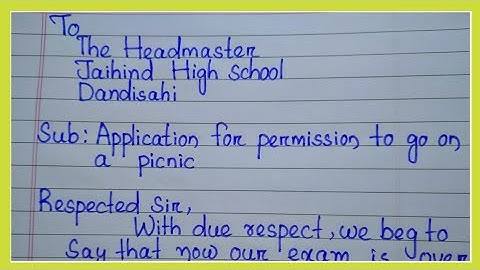 To
The Headmaster
Jaihind High School
Dandisahi
Sub: Application for permission to go on
a picnic
Respected Sir,
With due respect, we beg to
Say that now our exam is over